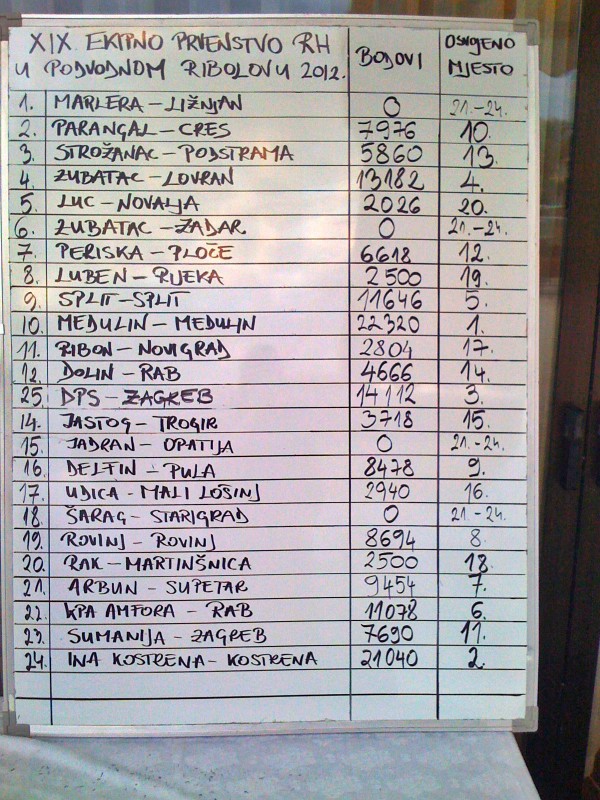 XIX EKIPNO PRVENSTVO RH
U PODVODNOM RIBOLOVU 2012.
BODOVI
OSVOJENO
MJESTO
1. MARLERA – LIŽNJAN 0 21.-24.
2. PARANGAL – CRES 7976 10.
3. STROŽANAC – PODSTRAMA 5860 13.
4. ZUBATAC – LOVRAN 13182 4.
5. LUC – NOVALJA 2026 20.
6. ZUBATAC – ZADAR 0 21.-24.
7. PERISKA – PLOČE 6618 12.
8. LUBEN – RIJEKA 2500 19.
9. SPLIT – SPLIT 11646 5.
10. MEDULIN – MEDULIN 22320 1.
11. RIBON – NOVIGRAD 2804 17.
12. DOLIN – RAB 4666 14.
25. DPS – ZAGREB 14112 3.
14. JASTOG – TROGIR 3718 15.
15. JADRAN – OPATIJA 0 21.-24.
16. DELFIN – PULA 8478 9.
17. UDICA - MALI LOŠINJ 2940 16.
18. ŠARAG – STARIGRAD 0 21.-24.
19. ROVINJ – ROVINJ 8694 8.
20. RAK – MARTINŠNICA 2500 18.
21. ARBUN – SUPETAR 9454 7.
22. KPA AMFORA – RAB 11078 6.
23. SUMANIJA – ZAGREB 7690 11.
24. INA KOSTRENA – KOSTRENA 21040 2.